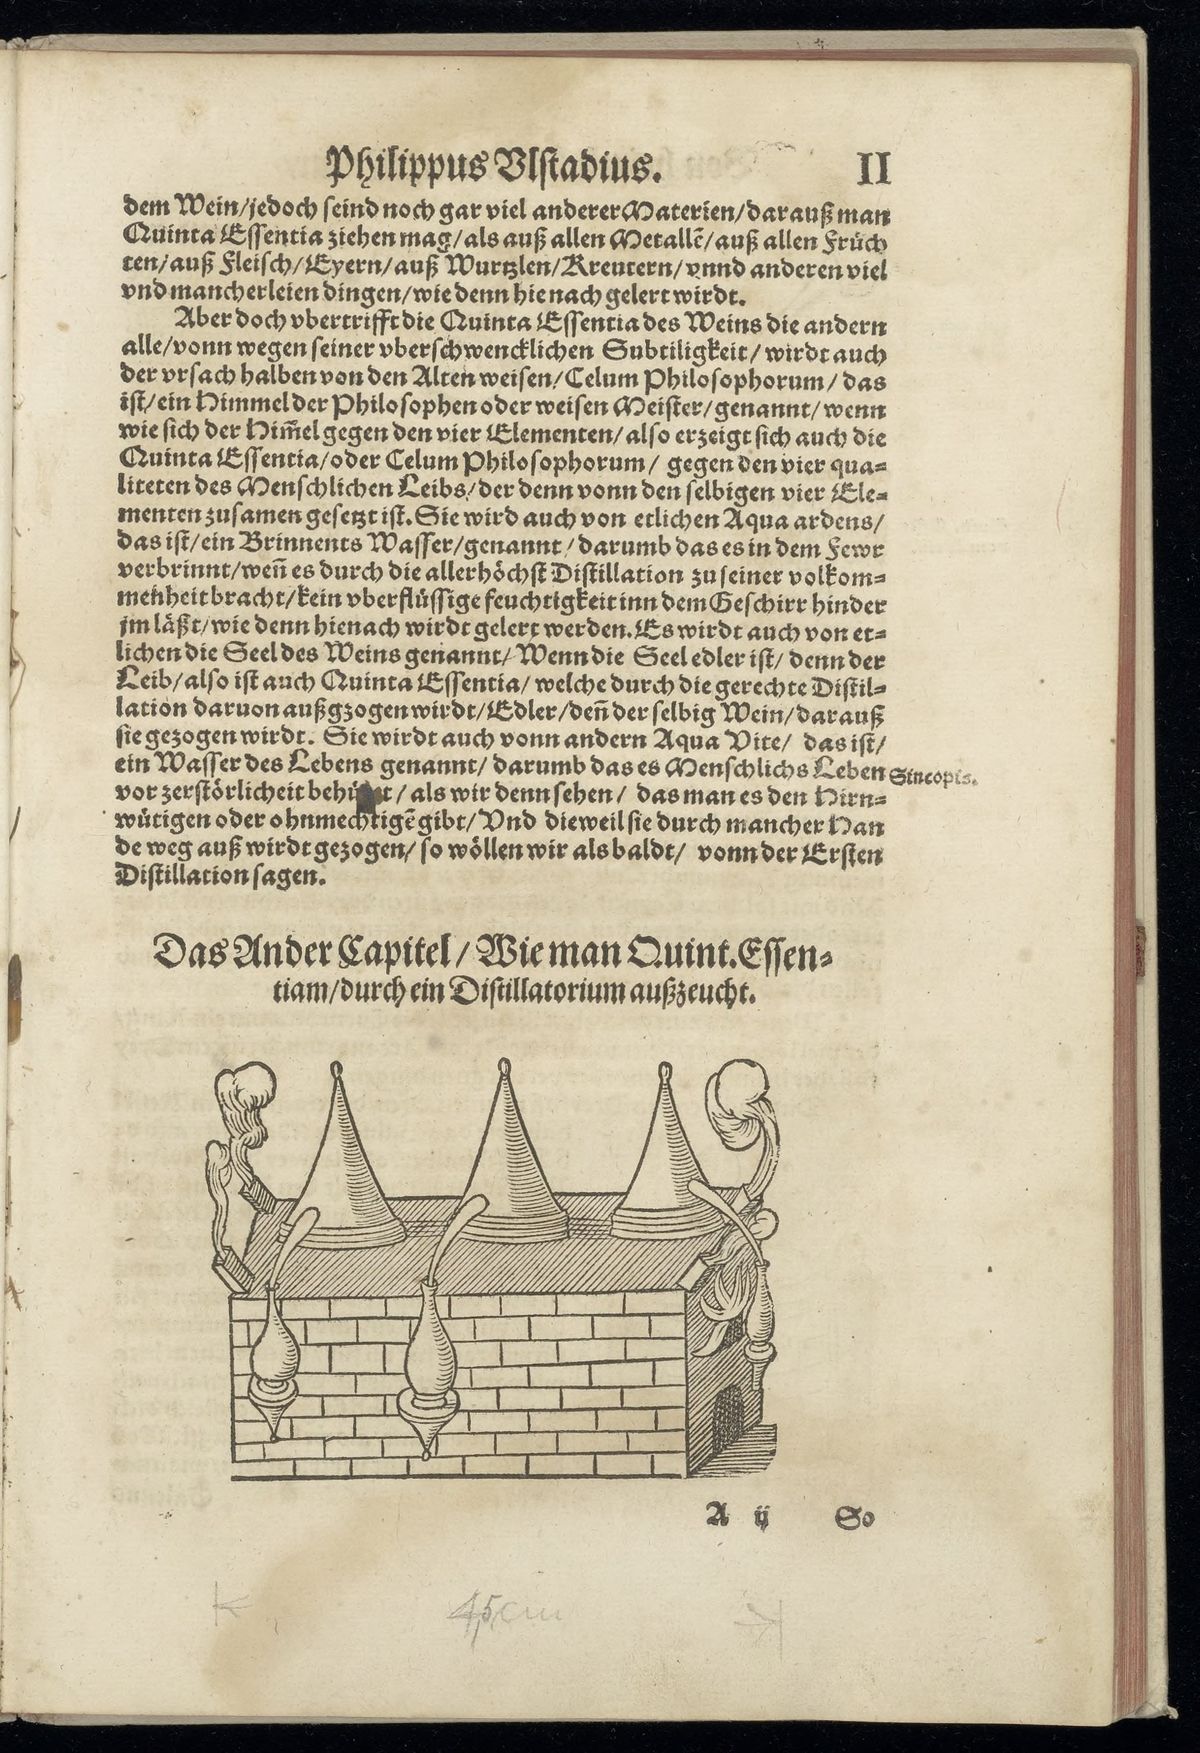 Philippus Vlstadius. II
dem Wein/jedoch seind noch gar viel anderer Materien/darauß man
Quinta Essentia ziehen mag/als auß allen Metallẽ/auß allen Früch
ten/auß Fleisch/Eyern/auß Wurtzlen/Kreutern/vnnd anderen viel
vnd mancherleien dingen/wie denn hie nach gelert wirdt.
Aber doch vbertrifft die Quinta Essentia des Weins die andern
alle/vonn wegen seiner vberschwencklichen Subtiligkeit/wirdt auch
der vrsach halben von den Alten weisen/Celum Philosophorum/das
ist/ein Himmel der Philosophen oder weisen Meister/genannt/wenn
wie sich der Him̃el gegen den vier Elementen/also erzeigt sich auch die
Quinta Essentia/oder Celum Philosophorum/ gegen den vier qua-
liteten des Menschlichen Leibs/der denn vonn den selbigen vier Ele-
menten zusamen gesetzt ist. Sie wird auch von etlichen Aqua ardens/
das ist/ein Brinnents Wasser/genannt/darumb das es in dem Fewr
verbrinnt/weñ es durch die allerhöchst Distillation zu seiner volkom-
menheit bracht/kein vberflüssige feuchtigkeit inn dem Geschirr hinder
jm läßt/wie denn hienach wirdt gelert werden. Es wirdt auch von et-
lichen die Seel des Weins genannt/Wenn die Seel edler ist/denn der
Leib/also ist auch Quinta Essentia/welche durch die gerechte Distil-
lation daruon außgzogen wirdt/Edler/deñ der selbig Wein/darauß
sie gezogen wirdt. Sie wirdt auch vonn andern Aqua Vite/ das ist/
ein Wasser des Lebens genannt/darumb das es Menschlichs Leben
Sincopis.
vor zerstörlicheit / als wir denn sehen/ das man es den Hirn-
wütigen oder ohnmechtigẽ gibt/Vnd dieweil sie durch mancher Han
de weg auß wirdt gezogen/so wöllen wir als baldt/ vonn der Ersten
Distillation sagen.
Das Ander Capitel/Wie man Quint. Essen-
tiam/durch ein Distillatorium außzeucht.
A ij So
4,5 cm